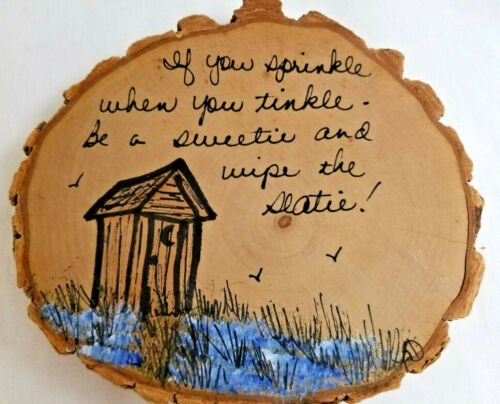 If you sprinkle
when you tinkle -
Be a sweetie and
wipe the
seatie!